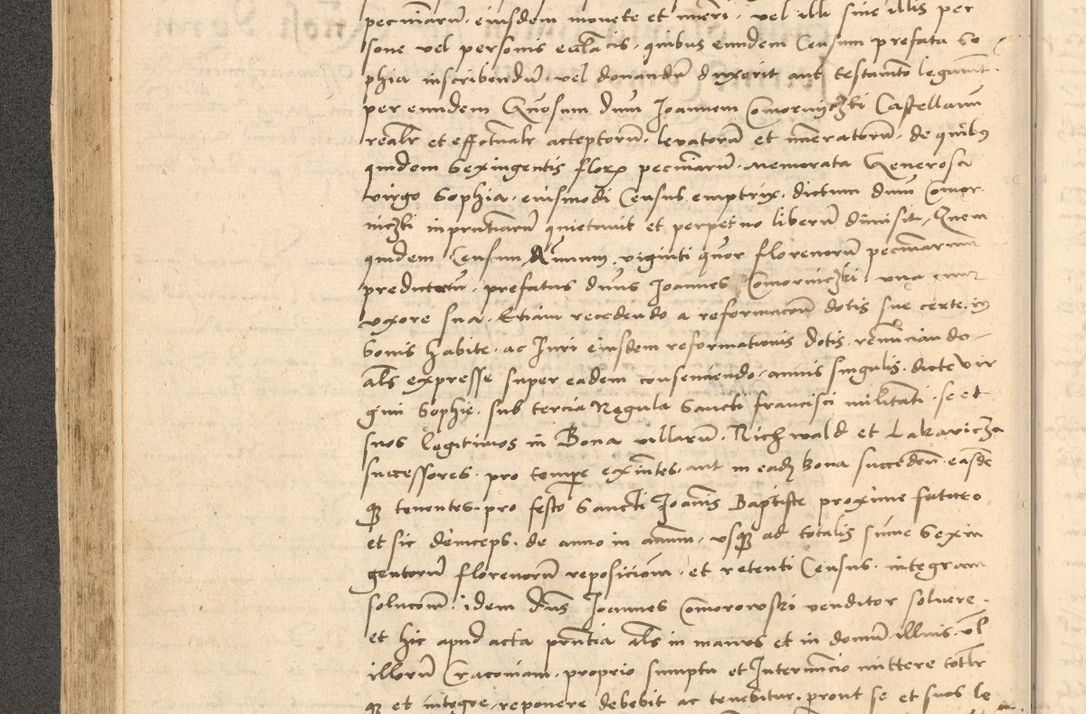 pecuniarũ, eiusdem monete et nũeri, vel illi siue illis per
sone vel personis eccl̃iacis, quibus eundem Censum prefata So
phia inscribendũ vel donandũ duxerit aut testamẽto legauerit.
per eundem Gñosum dñum Joannem Comorniczki Castellanũ
realr̃ et effectualr̃ acceptorũ, leuatorũ et nũeratorũ, de quibus
quidem Sexingentis florẽ pecuniarũ, memorata Generosa
virgo Sophia, eiusmodi Census emptrix, dictum dñum Comor
niczki in pñtiarũ quietauit et perpetuo liberũ dimisit, Quem
quidem Censum Annuum, viginti quor florenorũ pecuniarum
predictarũ, prefatus dñus Joannes Comorniczki, vna cum
vxore sua, Etiam recedendo a reformacõne dotis sue certe, in
bonis habite, ac Juri eiusdem reformationis dotis, renũciando,
als expresse super eadem consenciendo, annis singulis, dicte Vir
gini Sophie, sub tercia Regula Sancti Francisci militanti, se et
suos legitimos in Bona villarũ, Richwald et Lakavicza
successores, pro tempore exñtes, aut in eadẽ bona succedeñ, easdẽ
que tenentes, pro festo Sancti Joannis Baptiste proxime futuro,
et sic deinceps, de anno in annum, vsque ad totalis sũme Sexin
gentorũ florenorũ reposiciónẽ, et retenti Census, integram
solucionẽ, idem dñs Joannes Comorowski venditor soluere,
et hic apud acta pñtia als in manus et in domũ illius, vel
illorũ Cracouiam, proprio sumptu et Interũncio mittere totlr̃
que et integre, reponere debebit ac tenebitur, prout se et suos le